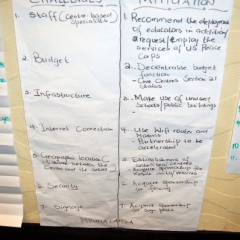 CHALLENGES
MITIGATION
1. Staff (centre-based
specialists)
1. Recommend the deployment
of educators in addition/
& request/employ the
services of US Peace
Corps
2. Budget
2. Decentralise budget
function
- Give Centres Section 21
Status
3. Infrastructure
3. Make use of unused
schools/public buildings
4. Internet Connection
4. Use Wifi router and
modems
- Partnership to be
accelerated
5. Geographic location
between the
Centre and its
5. Establishment of
6. Security
Acquire sponsorship
for fencing
7. Signage
Acquire sponsorship
for sign posts
MPUMALANGA